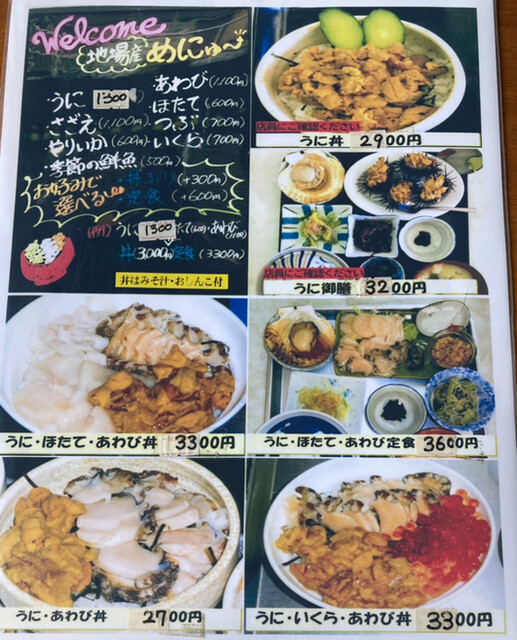 Welcome
地場産 めにゅ〜
うに 1300
あわび(1,100円)
さざえ(1,100円)
ほたて(600円)
やりいか(600円)
つぶ(700円)
いくら(700円)
・季節の鮮魚(500円)
お好みで選べる
・丼ぶり(+300円)
・定食(+600円)
(例) うに 1300 ほたて(600) あわび(1100)
丼 3000円 定食(3300円)
丼はみそ汁・おしんこ付
店員にご確認ください
うに丼 2900円
店員にご確認ください
うに御膳 3200円
うに・ほたて・あわび丼 3300円
うに・ほたて・あわび定食 3600円
うに・あわび丼 2700円
うに・いくら・あわび丼 3300円